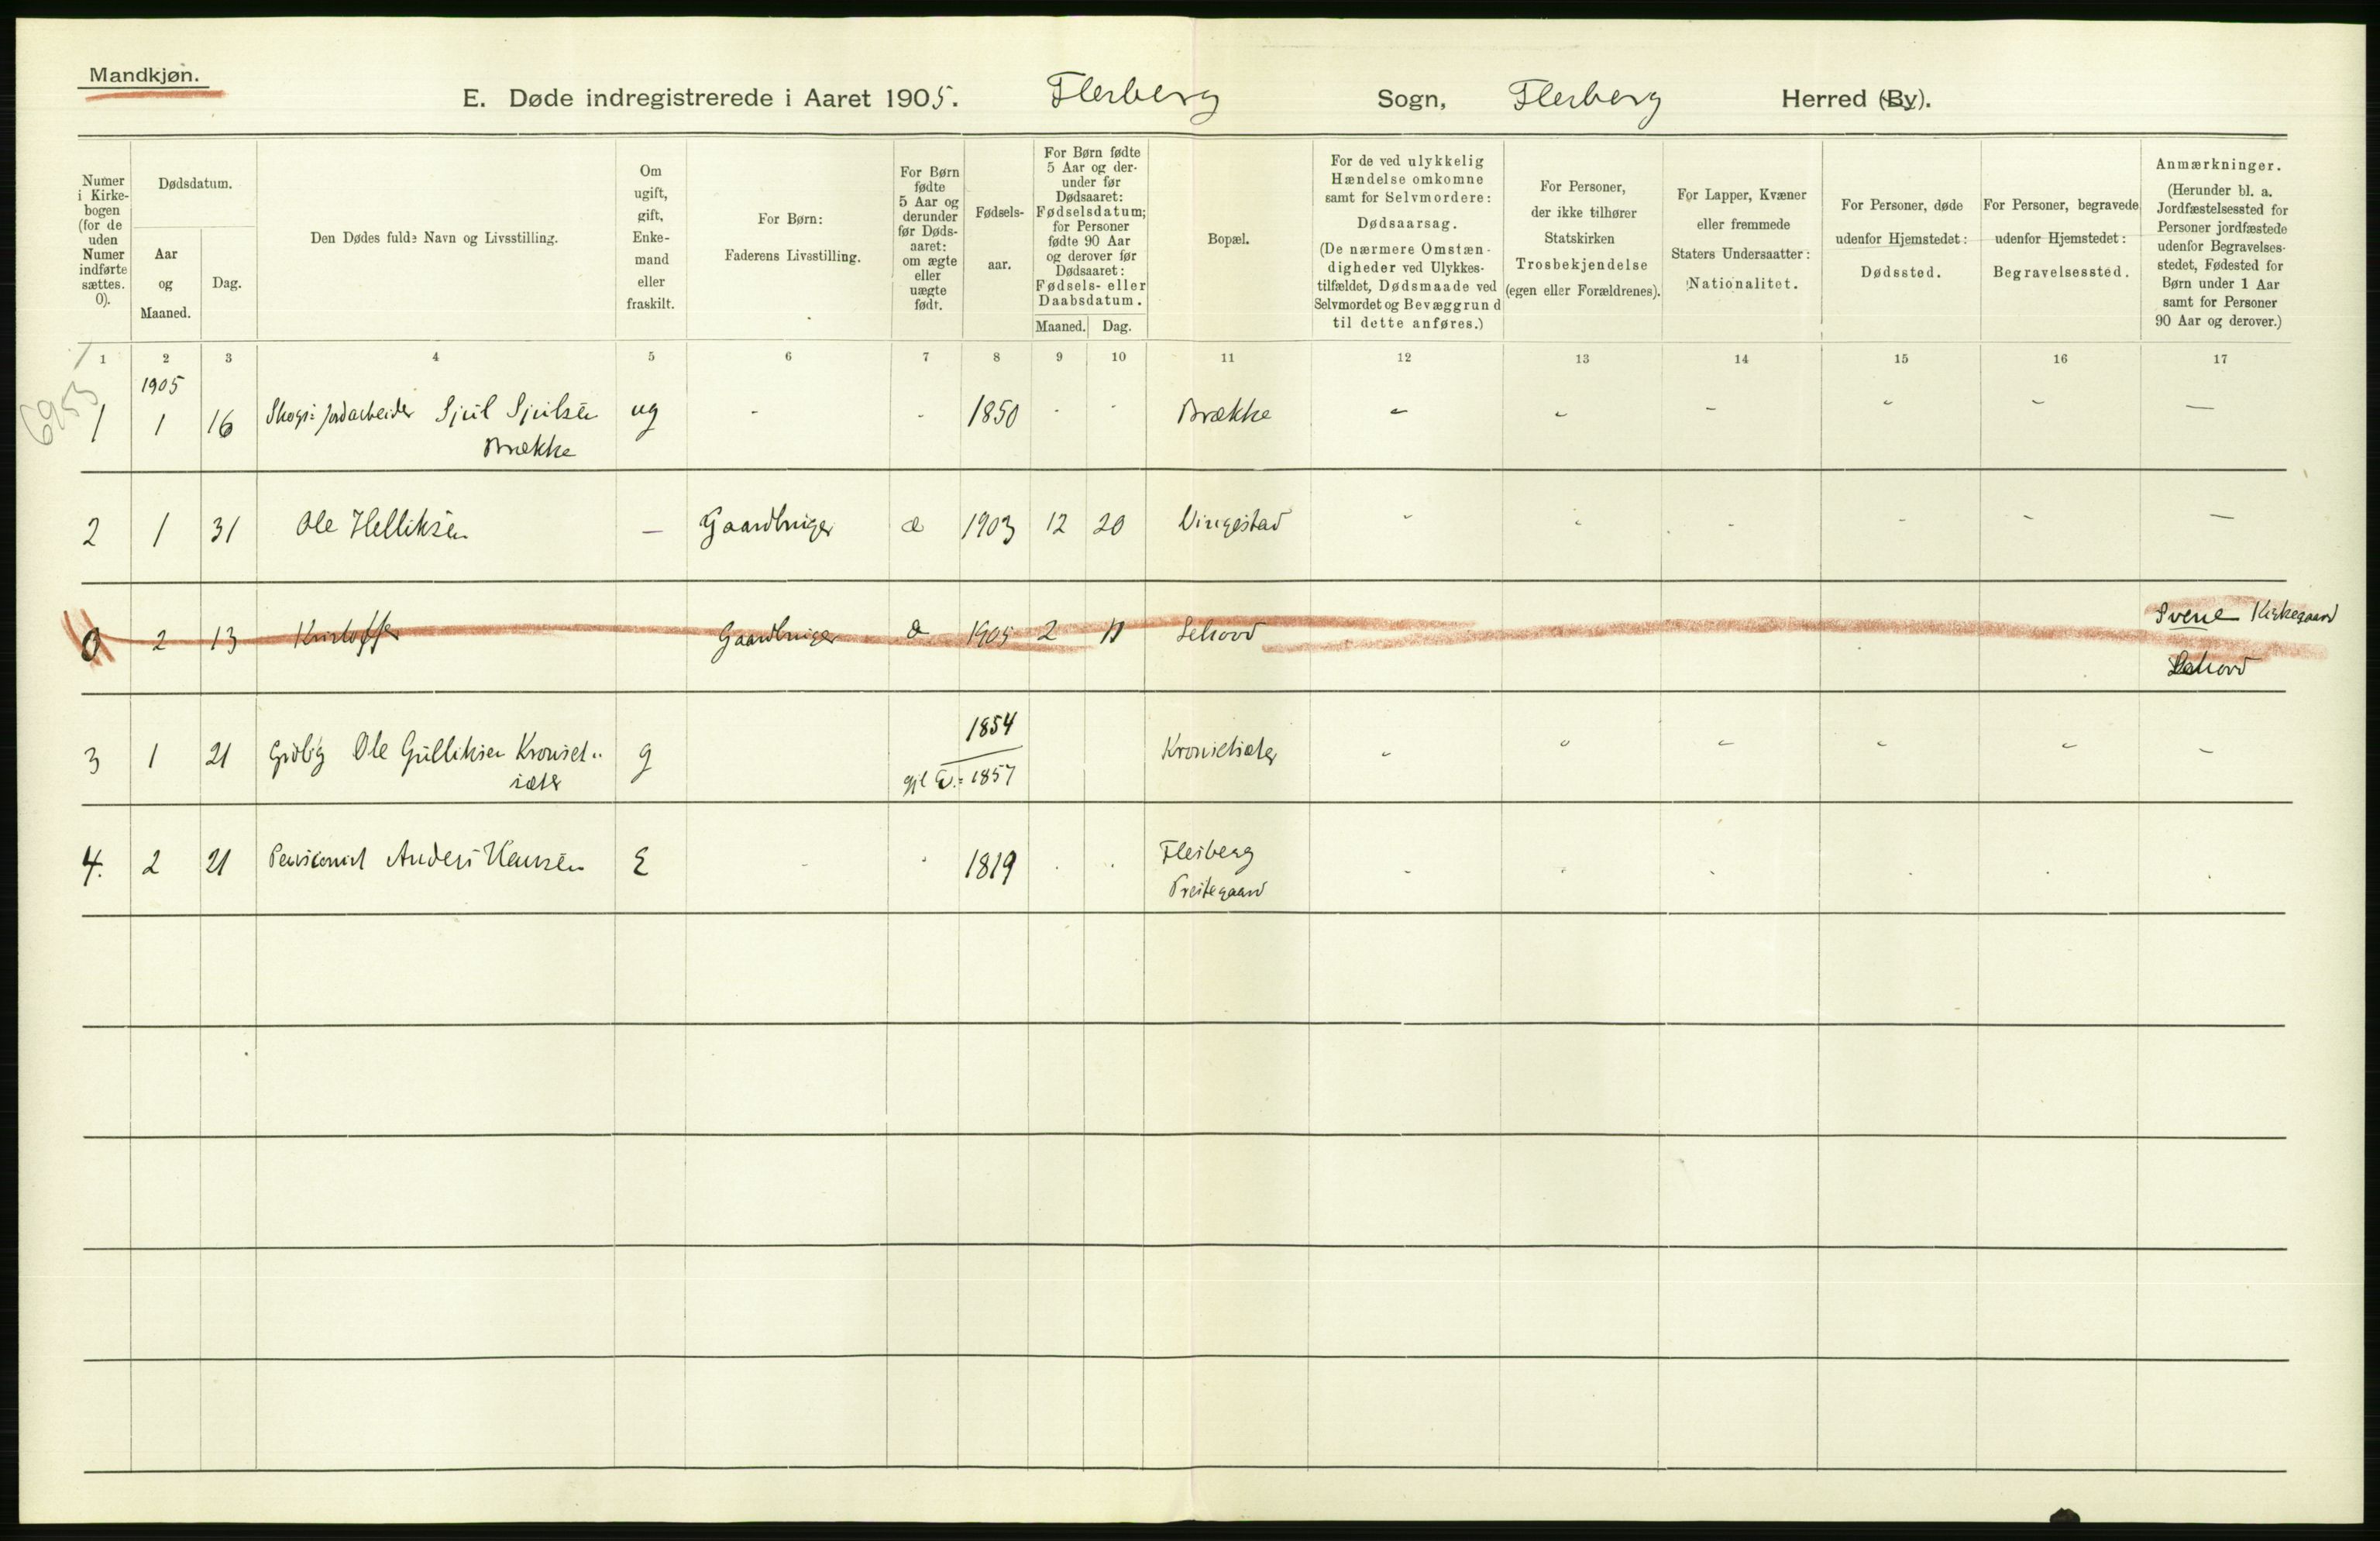 Mandkjøn.
E. Døde indregistrerede i Aaret 1905. Flesberg Sogn, Flesberg Herred (By).
Numer i Kirkebogen (for de uden Numer indførte sættes. 0).
Dødsdatum.
Aar og Maaned.
Dag.
Den Dødes fulde Navn og Livsstilling.
Om ugift, gift, Enkemand eller fraskilt.
For Børn:
Faderens Livsstilling.
For Børn fødte 5 Aar og derunder før Dødsaaret: om ægte eller uægte født.
Fødselsaar.
For Børn fødte 5 Aar og derunder før Dødsaaret: Fødselsdatum; for Personer fødte 90 Aar og derover før Dødsaaret: Fødsels- eller Daabsdatum.
Maaned. Dag.
Bopæl.
For de ved ulykkelig Hændelse omkomne samt for Selvmordere: Dødsaarsag. (De nærmere Omstændigheder ved Ulykkestilfældet, Dødsmaade ved Selvmordet og Bevæggrund til dette anføres.)
For Personer, der ikke tilhører Statskirken Trosbekjendelse (egen eller Forældrenes).
For Lapper, Kvæner eller fremmede Staters Undersaatter: Nationalitet.
For Personer, døde udenfor Hjemstedet: Dødssted.
For Personer, begravede udenfor Hjemstedet: Begravelsessted.
Anmærkninger.
(Herunder bl. a. Jordfæstelsessted for Personer jordfæstede udenfor Begravelsesstedet, Fødested for Børn under 1 Aar samt for Personer 90 Aar og derover.)
1 2 3 4 5 6 7 8 9 10 11 12 13 14 15 16 17
6953
1905
1 1 16 Skogs= jordarbeider Sjul Sjulsen ug - - 1850 - - Brække - - - - - -
Brække
2 1 31 Ole Helliksen - Gaardbruger æ 1903 12 20 Vingestad - - - - - -
0 2 13 Kristoffer Gaardbruger æ 1905 2 11 Lehovd Svene Kirkegaard
Lehovd
1854
3 1 21 Grdbg Ole Gulliksen Kronset= g Kronsetsæter - - - - - -
sæter gjl = 1857
4. 2 21 Pensionist Anders Hansen E - - 1819 - - Flesberg
Prestegaard